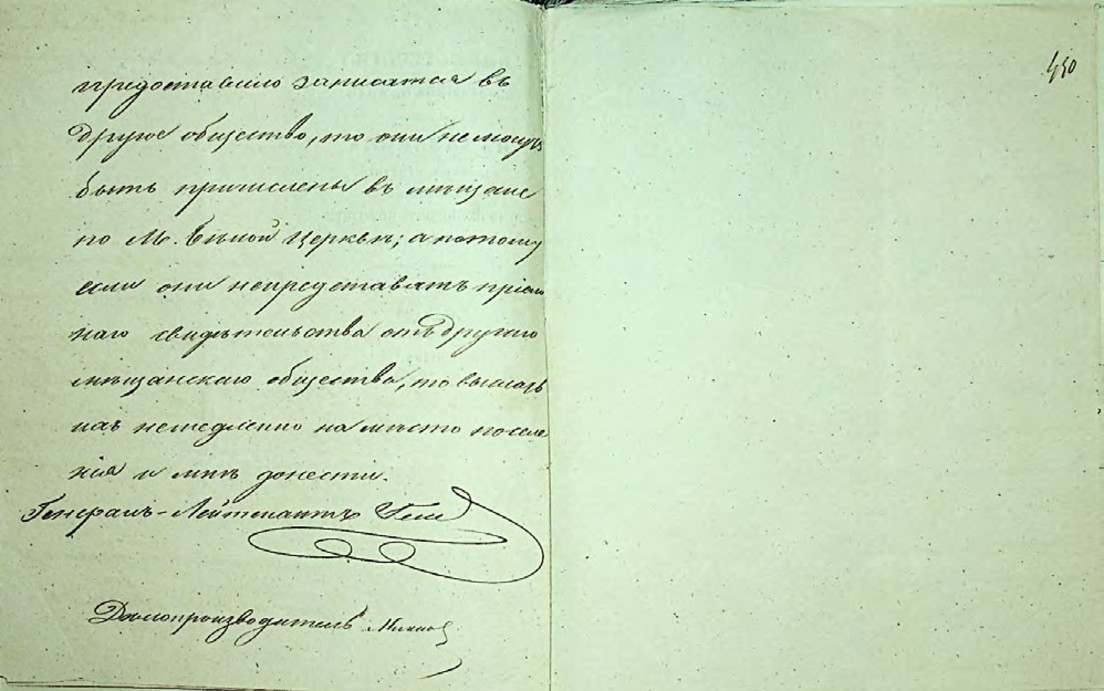 предоставлено записатся въ
другое общество, то они не могутъ
быть причислены въ мѣщане
по М. Бѣлой Церкви; а потому
если они непредставятъ пріем
наго свидѣтельства отъ другаго
мѣщанскаго общества, то выслать
ихъ немедленно на мѣсто поселе
нія и мнѣ донести.
Генералъ-Лейтенантъ Гессе
Дѣлопроизводитель
450